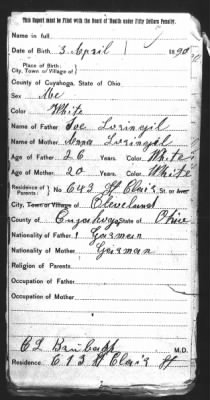 This Report must be Filed with the Board of Health under Fifty Dollars Penalty.
Name in full
Date of Birth 3 April 1 1890
Place of Birth:
City, Town or Village of
County of Cuyahoga, State of Ohio
Sex
Color White
Name of Father Joe
Name of Mother Anna
Age of Father 26 Years. Color, White
Age of Mother 20 Years. Color, White
Residence of Parents: No 643 St Clair St. or
City, Town or Village of Cleveland
County of Cuyahoga State of Ohio
Nationality of Father German
Nationality of Mother German
Religion of Parents
Occupation of Father
Occupation of Mother
M.D.
Residence 613 St Clair St